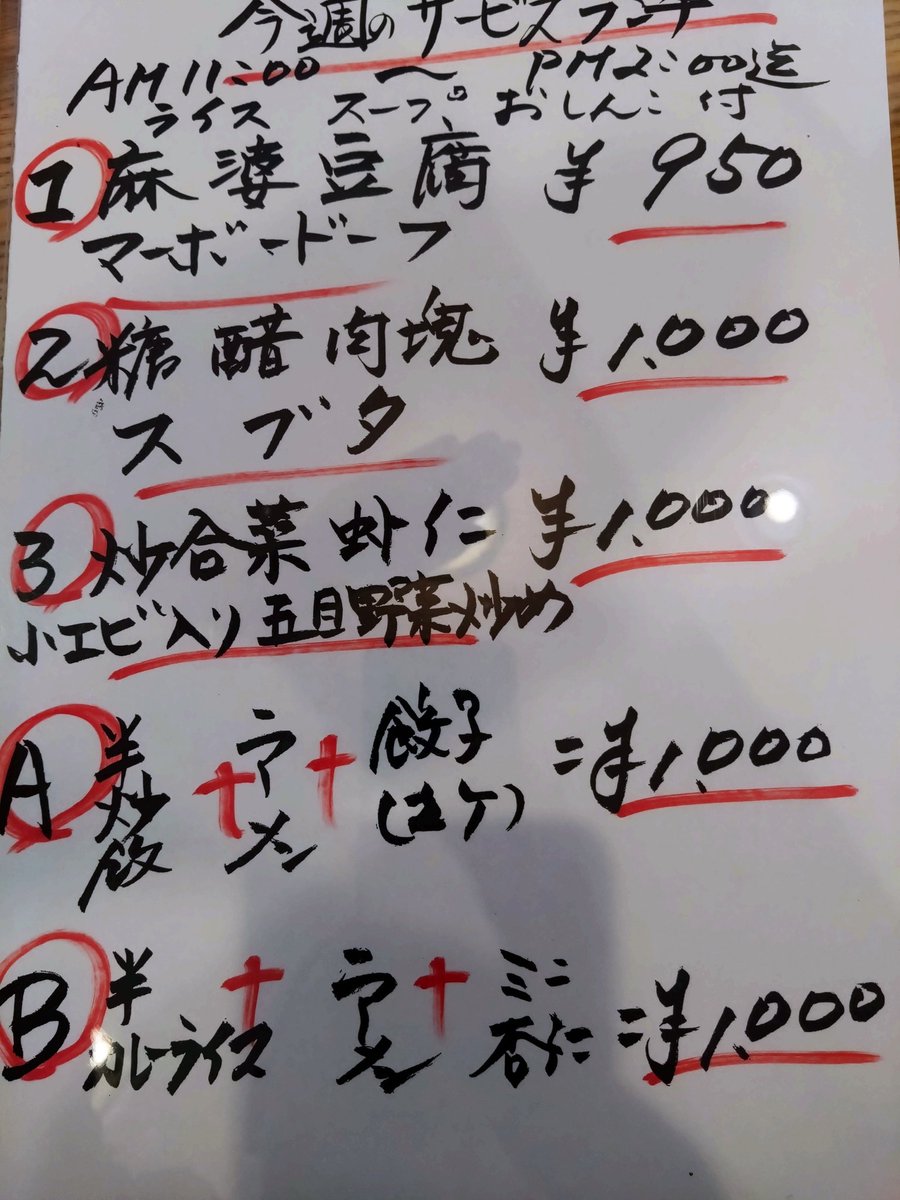 今週のサービスランチ
AM11:00 〜 PM2:00迄
ライス スープ おしんこ 付
1 麻婆豆腐 ¥950
マーボードーフ
2 糖醋肉塊 ¥1,000
スブタ
3 炒合菜虾仁 ¥1,000
小エビ入り五目野菜炒め
A 半炒飯 + ラーメン + 餃子(3ケ) = ¥1,000
B 半カレーライス + ラーメン + ミニ杏仁 = ¥1,000